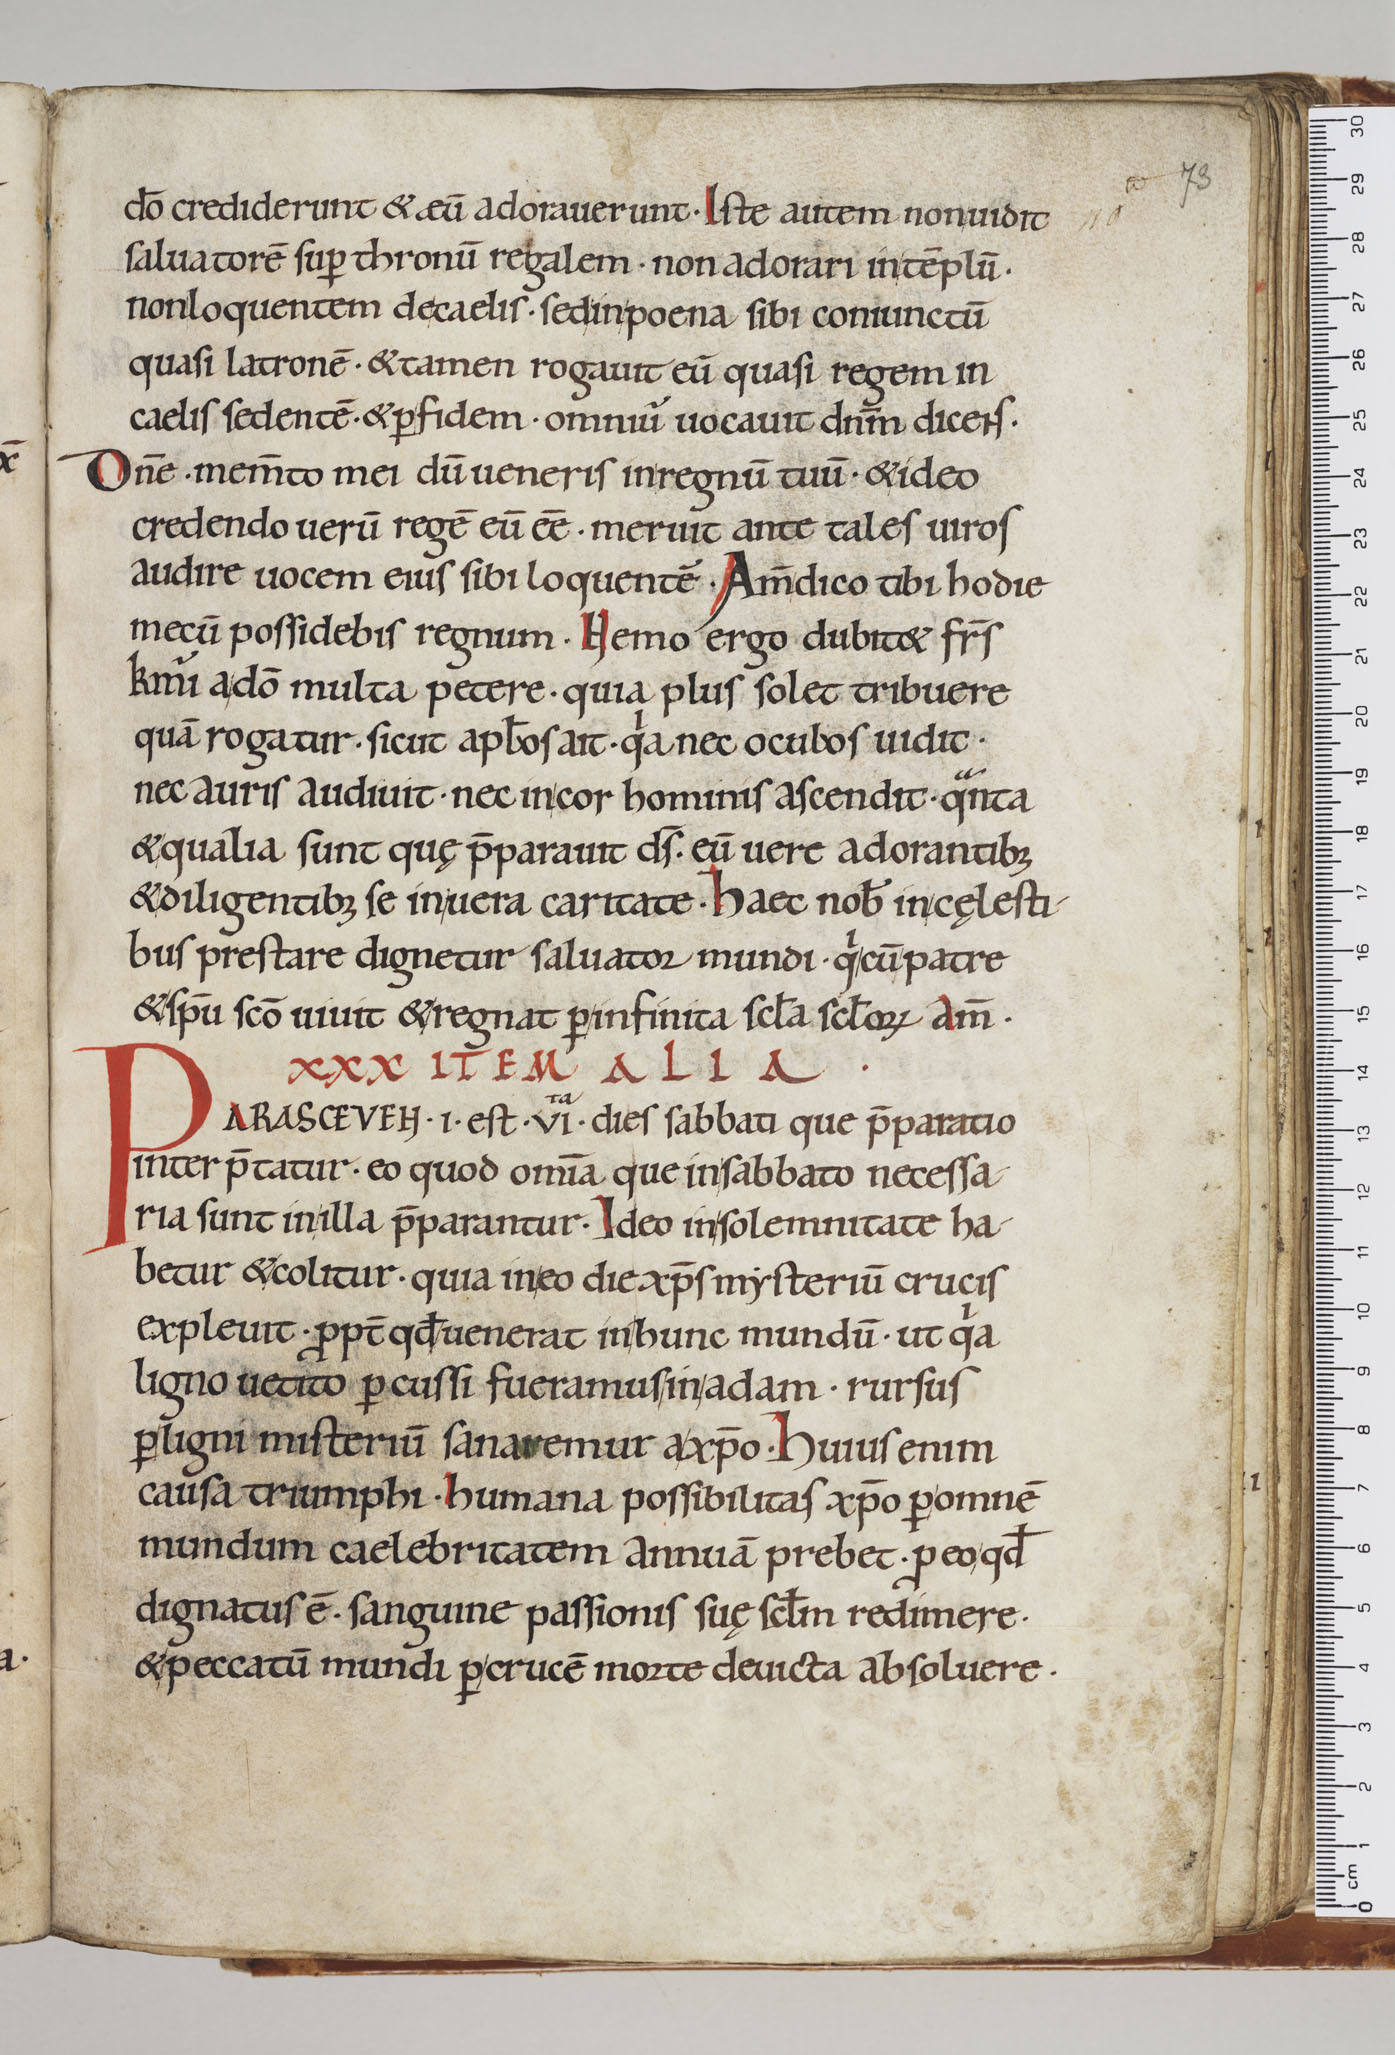 73
dō crediderunt & eū adorauerunt · Iste autem non uidit
saluatorē sup̄ thronū regalem · non adorari in tēplū ·
non loquentem de caelis · sed in poena sibi coniunctū
quasi latronē · & tamen rogauit eū quasi regem in
caelis sedentē · & ꝑ fidem · omniū uocauit dn̄m dicens ·
Dn̄e · mem̄to mei dū ueneris in regnū tuū · & ideo
credendo uerū regē eū eē · meruit ante tales uiros
audire uocem eius sibi loquentē · Am̄ dico tibi hodie
mecū possidebis regnum · Nemo ergo dubit& fr̄s
km̄i a dō multa petere · quia plus solet tribuere
quā rogatur · sicut apłos ait · qⁱa nec oculos uidit ·
nec auris audiuit · nec in cor hominis ascendit · qᵃnta
& qualia sunt quę p̄parauit ds̄ · eū uere adorantibꝫ
& diligentibꝫ se in uera caritate · haec nob̄ in cęlesti-
bus prestare dignetur saluator mundi · qⁱ cū patre
& sp̄u scō uiuit & regnat ꝑ infinita scła scłoꝝ am̄ ·
XXX ITEM ALIA ·
PARASCEVEN · i · est · VI ta · dies sabbati que p̄paratio
interp̄tatur · eo quod omīa que in sabbato necessa-
ria sunt in illa p̄parantur · Ideo in solemnitate ha-
betur & colitur · quia in eo die xp̄s mẏsteriū crucis
expleuit · ꝓpt̄ qđ uenerat in hunc mundū · ut qⁱa
ligno uetito ꝑcussi fueramus in adam · rursus
ꝑ ligni misteriū sanaremur a xp̄o · Huius enim
causa triumphi · humana possibilitas xp̄o ꝑ omnē
mundum caelebritatem annuā prebet · ꝓ eo qđ
dignatus ē · sanguine passionis suę scłm redimere ·
& peccatū mundi ꝑ crucē morte deuicta absoluere ·